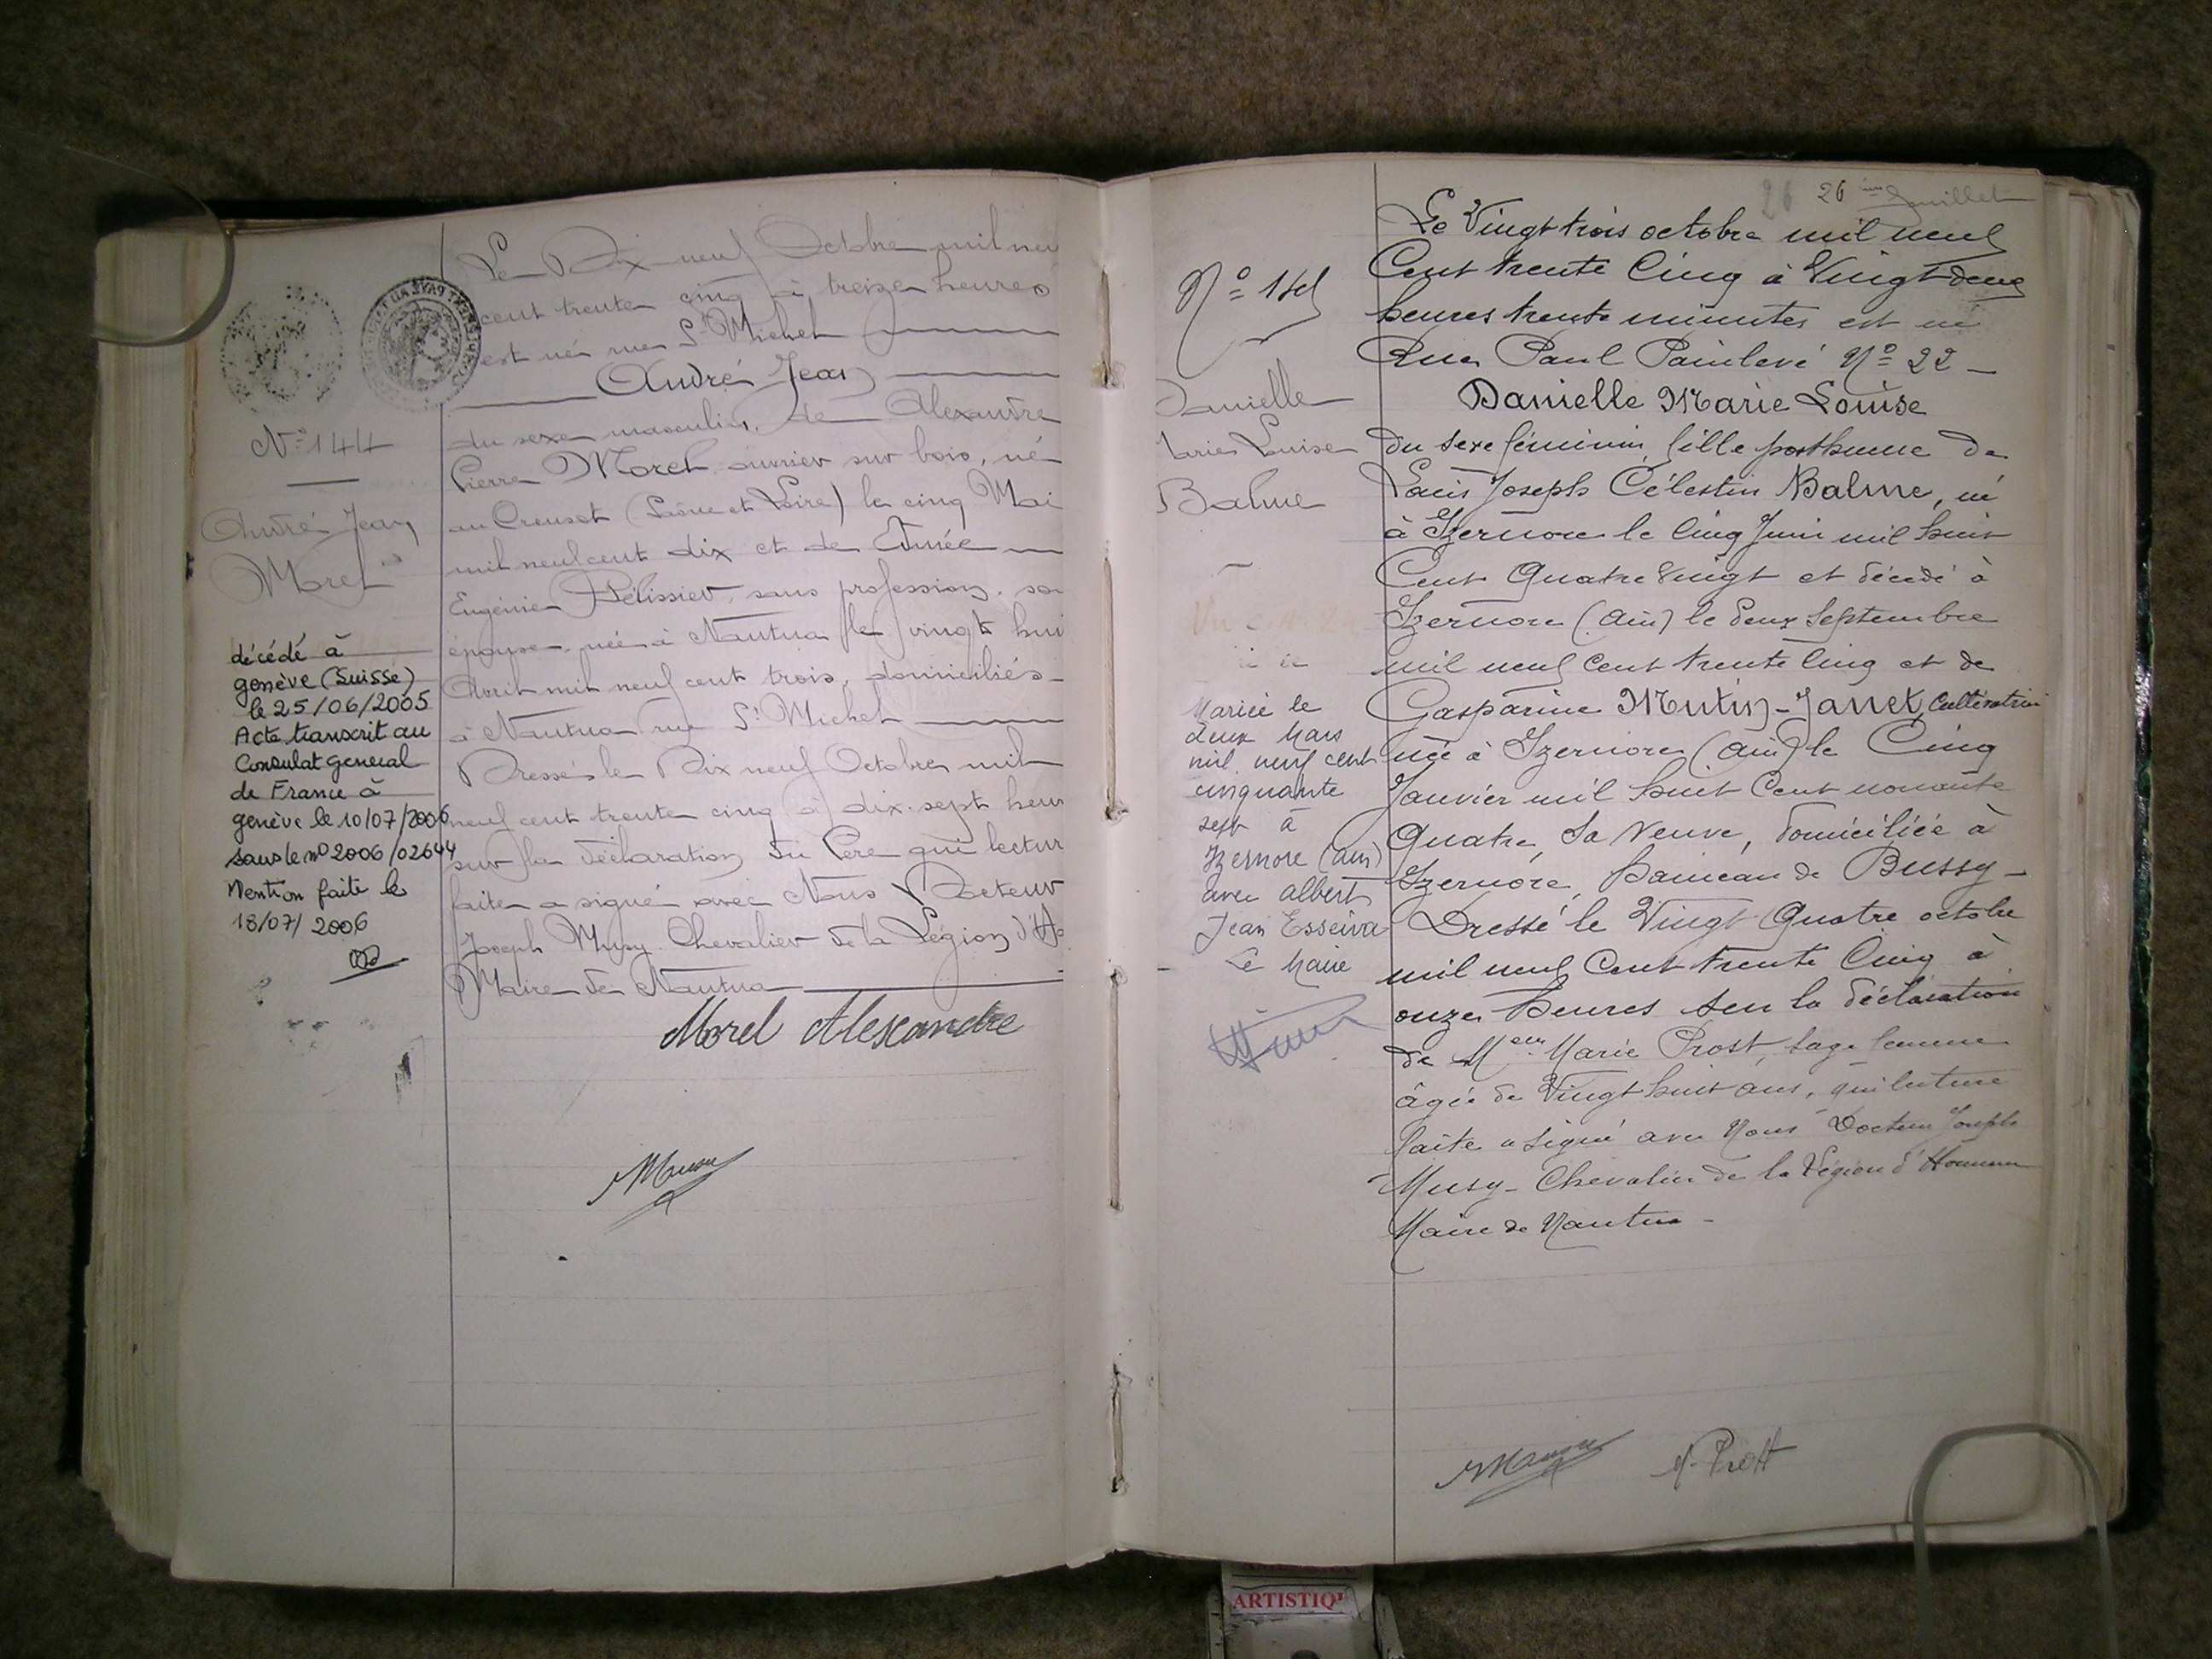 Le Dix neuf Octobre mil neu
cent trente cinq à treize heures
est né rue St Michel
André Jean
du sexe masculin, de Alexandre
Pierre Morel, ouvrier sur bois, né
au Creusot (Saône et Loire) le cinq Mai
mil neuf cent dix et de Aimée
Eugénie Pélissier, sans profession, son
épouse, née à Nantua le vingt hui
Avril mil neuf cent trois, domiciliés
à Nantua rue St Michel
Dressé le Dix neuf Octobre mil
neuf cent trente cinq à dix-sept heur
sur la déclaration du Père qui lectur
faite a signé avec Nous Docteur
Joseph Musy Chevalier de la Légion d'Ho
Maire de Nantua
Morel Alexandre
No 144
André Jean
Morel
décédé à
genève (Suisse)
le 25/06/2005
Acte transcrit au
Consulat general
de France à
genève le 10/07/2006
sous le no 2006/02644
Mention faite le
18/07/2006
26 26 feuillet
Le Vingt trois octobre mil neuf
Cent trente Cinq à Vingt deux
heures trente minutes est né
Rue Paul Painlevé No 22 -
Danielle Marie Louise
du sexe féminin, fille posthume de
Louis Joseph Célestin Balme, né
à Izernore le Cinq Juin mil huit
Cent Quatre Vingt et décédé à
Izernore (Ain) le deux Septembre
mil neuf Cent trente Cinq et de
Gasparine Mutin-Janet, Cultivatrice
née à Izernore (Ain) le Cinq
Janvier mil huit Cent nonante
Quatre, Sa Veuve, domiciliée à
Izernore, hameau de Bussy -
Dressé le Vingt Quatre octobre
mil neuf Cent trente Cinq à
onze heures sur la déclaration
de Mme Marie Prost, sage femme
âgée de Vingt huit ans, qui lecture
faite a signé avec Nous Docteur Joseph
Musy - Chevalier de la Légion d'Honneur
Maire de Nantua -
M. Prost
No 145
Danielle
Marie Louise
Balme
Mariée le
deux Mars
mil neuf cent
cinquante
sept à
Izernore (Ain)
avec Albert
Jean Esseiva
Le Maire
ARTISTIQ